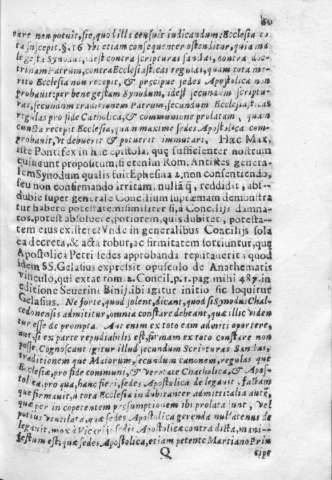 60
nare non potuit, sic, quod illi censuit iudicandum: Ecclesia to
ta suscepit. §. 16 Vbi etiam consequenter ostenditur, quia ma
le gesta Synodus, idest contra scripturas sanctas, contra doc-
trinam Patrum, contra Ecclesiasticas regulas, quam tota me-
rito Ecclesia non recepit, & precipue sedes Apostolica non
probauit: per bene gestam Synodum, idest secundum scriptu-
ras, secundum traditionem Patrum, secundum Ecclesiasticas
regulas pro fide Catholica, & communione prolatam, quam
cuncta recepit Ecclesia, quam maxime sedes Apostolica com-
probauit, vt debuerit & potuerit immutari. Hæc Max.
iste Pontifex in hac epistola, quę sufficienter nostrum
euincunt propositum, si etenim Rom. Antistes genera-
lem Synodum qualis fuit Ephesina 2. non consentiendo,
seu non confirmando irritam, nullā q, reddidit, abs-
dubie super generale Concilium supræmam demonstra
tur habere potestatem similiter si, a Concilijs damna-
tos, potest absoluere, potiorem, quis dubitet, potesta-
tem eius existere? Vnde in generalibus Concilijs sola
ea decreta, & acta robur, ac firmitatem sortiuntur, quę
Apostolica Petri sedes approbanda reputauerit: quod
idem SS. Gelasius expressit opusculo de Anathematis
vinculo, qui extat tom. 2. Concil. p. 1. pag. mihi 489. in
editione Seuerini Binij, ibi agitur initio sic loquitur
Gelasius. Ne forte, quod solent, dicant, quod si Synodus Chal-
cedonensis admittitur, omnia constare debeant, quæ illic viden
tur esse de prompta. Aut enim ex toto eam admitti oportere,
aut, si ex parte repudiabilis est, firmam ex toto constare non
posse. Cognoscant igitur illud secundum Scripturas Sanctas,
traditionem que Maiorum, secundum canonem, regulas que
Ecclesiæ, pro fide communi, & veritate Chatholica, & Apos-
tolica, pro qua, hanc fieri, sedes Apostolica delegauit, factam
que firmauit, a tota Ecclesia indubitanter admitti talia autē,
quæ per incopetentem presumptionem ibi prolata sunt, vel
potius ventilata, quæ sedes Apostolica gerenda nullatenus de
legauit, mox à Vicarijs sedis Apostolicæ contradicta, mani-
festum est; quæ sedes Apostolica, etiam petente Martiano Prin
Q
cipe